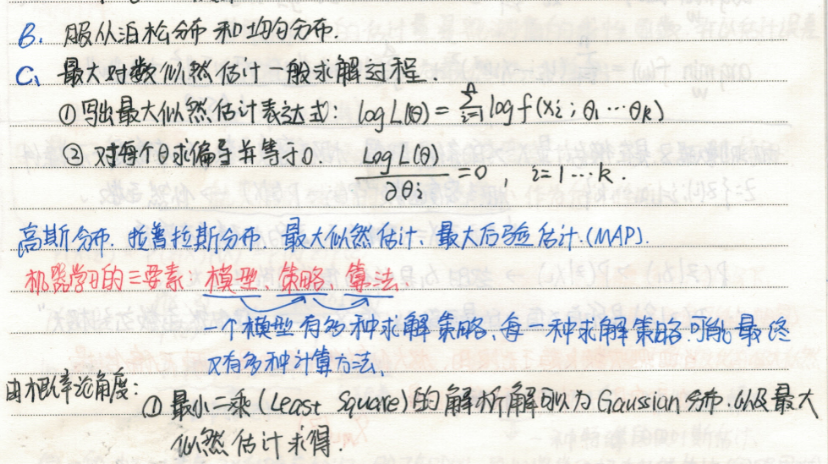 B. 服从泊松分布和均匀分布.
C、最大对数似然估计一般求解过程.
① 写出最大似然估计表达式: log L(θ) = Σ_{i=1}^{n} log f(xi; θ1⋯θk)
② 对每个θ求偏导并等于0. Log L(θ) / ∂θi = 0, i=1⋯k.
高斯分布. 拉普拉斯分布. 最大似然估计、最大后验估计.(MAP).
机器学习的三要素: 模型 策略、算法.
一个模型有多种求解策略、每一种求解策略.可能最终
又有多种计算方法、
由概率论角度:
① 最小二乘(Least Square)的解析解可以为Gaussian分布.以及最大
似然估计求得.